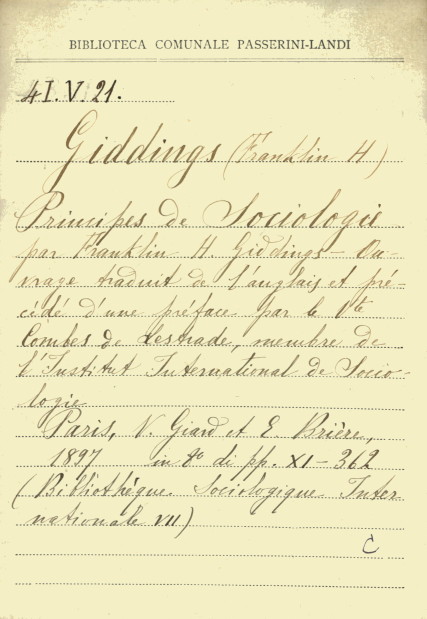 BIBLIOTECA COMUNALE PASSERINI-LANDI
4I.V.21.
Giddings (Franklin H)
Principes de Sociologie
par Franklin H. Giddings - Ou-
vrage traduit de l'anglais et pré-
cédé d'une préface par le Vte
Combes de Lestrade, membre de
l'Institut International de Socio-
logie
Paris, V. Giard et E. Brière,
1897 in 8° di pp. XI-362
(Bibliothèque Sociologique Inter
nationale VII)
C